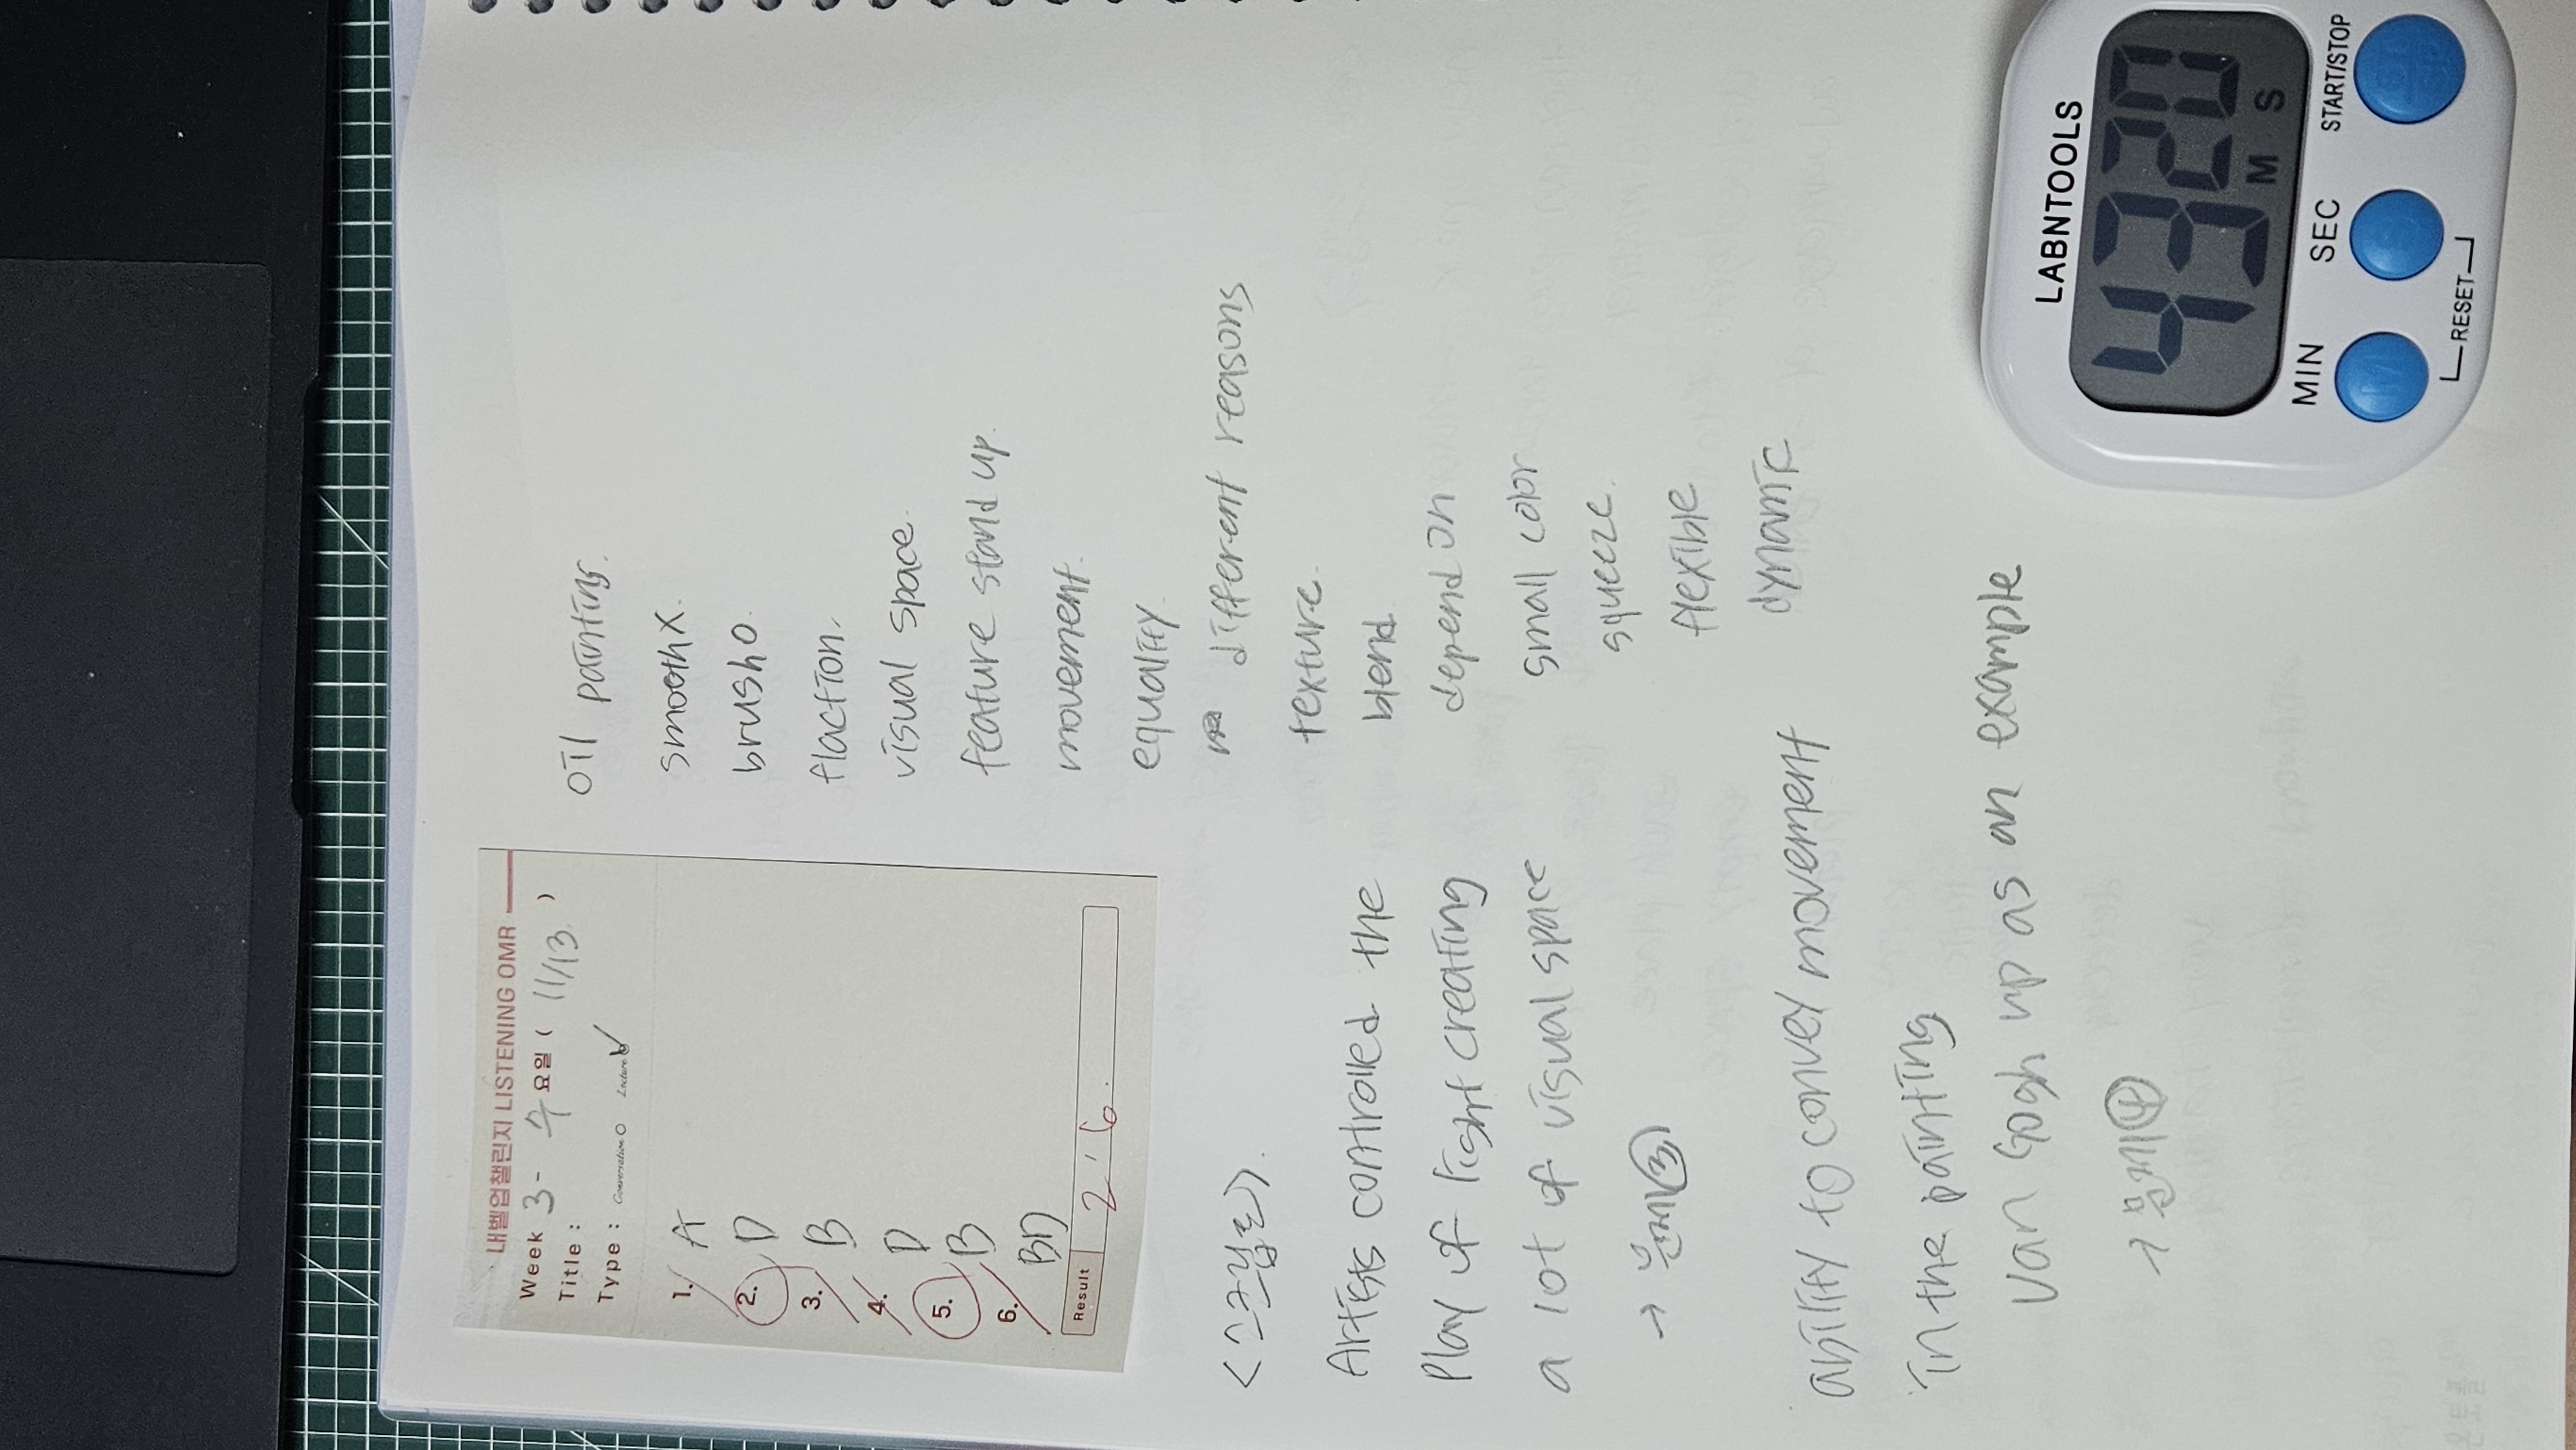 내벨업챌린지 LISTENING OMR
Week 3 - 수 요일 ( 11/13. )
Title :
Type : Conversation O Lecture
1. A
2. D
3. B
4. D
5. B
6. BD
Result 2 / 6.
oil painting.
smooth X.
brush O.
flaction.
visual space.
feature stand up.
movement.
equality.
different reasons
texture.
blend.
depend on
small color
squeeze.
flexible
dynamic
<근거찾는>.
Artists controlled the
Play of light creating
a lot of visual space
→ 문제③
ability to convey movement
in the painting
Van Gogh up as an example
→ 문제④
LABNTOOLS
43 20
M S
MIN SEC START/STOP
RESET